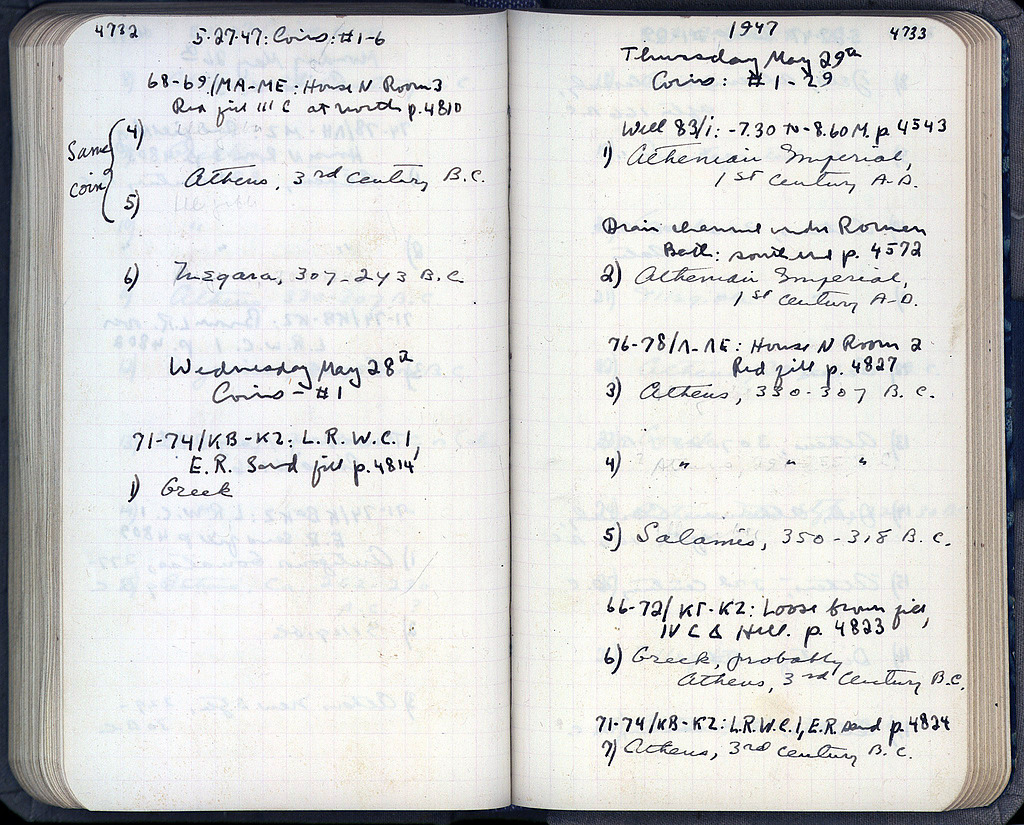 4732
5-27-47: Coins: #1-6
68-69/MA-ME: House N Room 3
Red fill III C at north p. 4810
Same
coin
4)
Athens, 3rd century B.C.
5)
6) Megara, 307-243 B.C.
Wednesday May 28th
Coins - #1
71-74/KB-KZ: L.R.W.C.1,
E.R. Sand fill p. 4814
1) Greek
1947
4733
Thursday May 29th
Coins: #1-29
Well 83/i: -7.30 to -8.60 M. p. 4543
1) Athenian Imperial,
1st century A.D.
Drain channel under Roman
Bath: south end p. 4572
2) Athenian Imperial,
1st century A.D.
76-78/Λ-ΛE: House N Room 2
Red fill p. 4827
3) Athens, 330-307 B.C.
4) " " "
5) Salamis, 350-318 B.C.
66-72/KΓ-KZ: Loose brown fill,
IV C & Hell. p. 4823
6) Greek, probably
Athens, 3rd century B.C.
71-74/KB-KZ: L.R.W.C.1, E.R. sand p. 4824
7) Athens, 3rd century B.C.